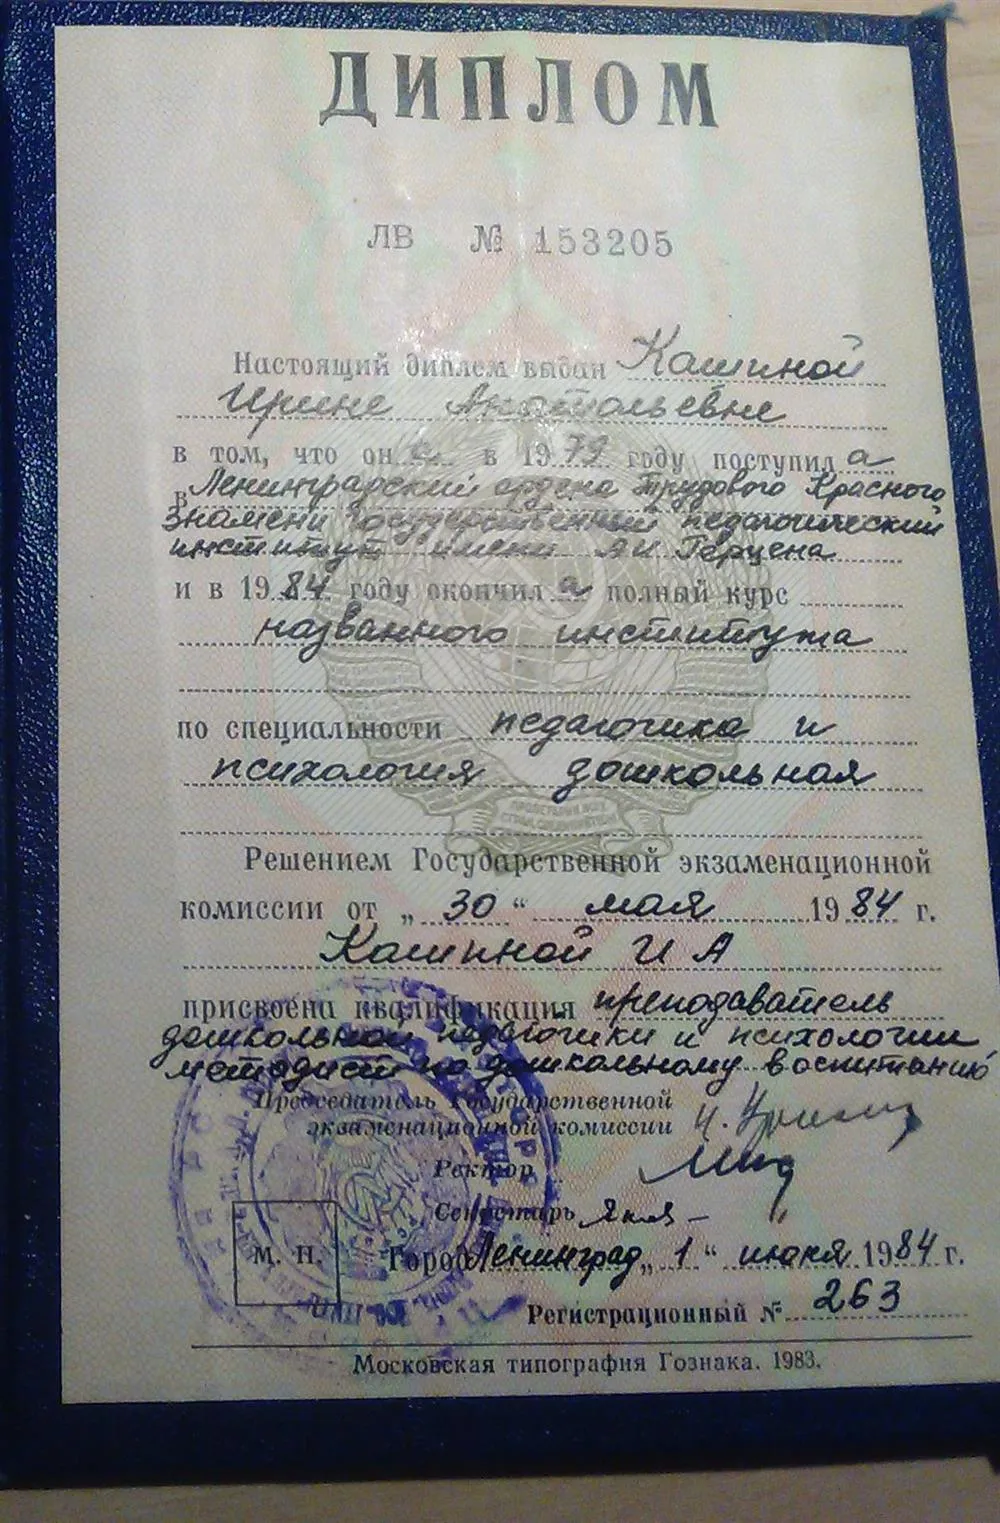 ДИПЛОМ
ЛВ № 153205
Настоящий диплом выдан Кашиной
Ирине Анатольевне
в том, что он а в 1979 году поступил а
в Ленинградский ордена Трудового Красного
Знамени государственный педагогический
институт имени А И Герцена
и в 1984 году окончил а полный курс
названного института
по специальности педагогика и
психология дошкольная
Решением Государственной экзаменационной
комиссии от „30“ мая 1984 г.
Кашиной И А
присвоена квалификация преподаватель
дошкольной педагогики и психологии
методист по дошкольному воспитанию
Председатель Государственной
экзаменационной комиссии
Ректор
Секретарь
М. П. Город Ленинград „1“ июня 1984 г.
Регистрационный № 263
Московская типография Гознака. 1983.